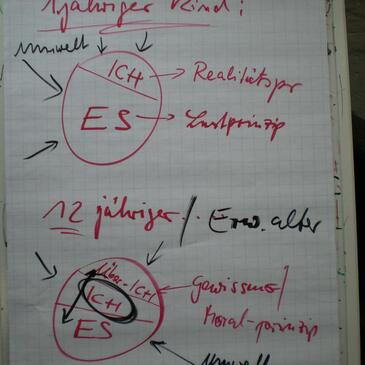 1jähriger Kind:
Umwelt
ICH → Realitätspr
ES → Lustprinzip
12 jähriger. / Erw. alter
Über-ICH
ICH
Gewissens/
ES
Moral-prinzip
Umwelt